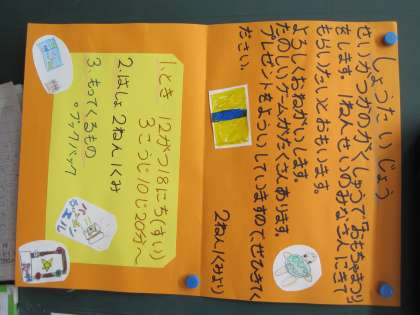 しょうたいじょう
せいかつかのがくしゅうで「おもちゃまつり」
をします。1ねんせいのみなさんにきて
もらいたいとおもいます。
よろしくおねがいします。
たのしいゲームがたくさんあります。
プレゼントをよういしていますので、ぜひきてく
ださい。
2ねん1くみより
1.とき 12がつ18にち(すい)
3こうじ10じ20分～
2.はしょ2ねん1くみ
3.もってくるもの
。ブックバック